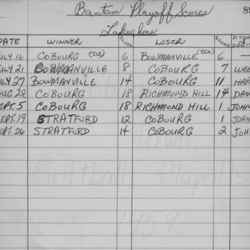 Bantam Playoff Scores
Lakeshore
DATE WINNER LOSER
JULY 16 COBOURG (TIE) 6 BOWMANVILLE (TIE) 6
JULY 21 BOWMANVILLE 8 COBOURG 7
JULY 27 BOWMANVILLE 14 COBOURG 11
AUG 28 COBOURG 18 RICHMOND HILL 14
SEPT. 5 COBOURG 18 RICHMOND HILL 1 JOHN
SEPT. 19 STRATFORD 12 COBOURG 1 JOHN
SEPT. 26 STRATFORD 14 COBOURG 2 JOHN